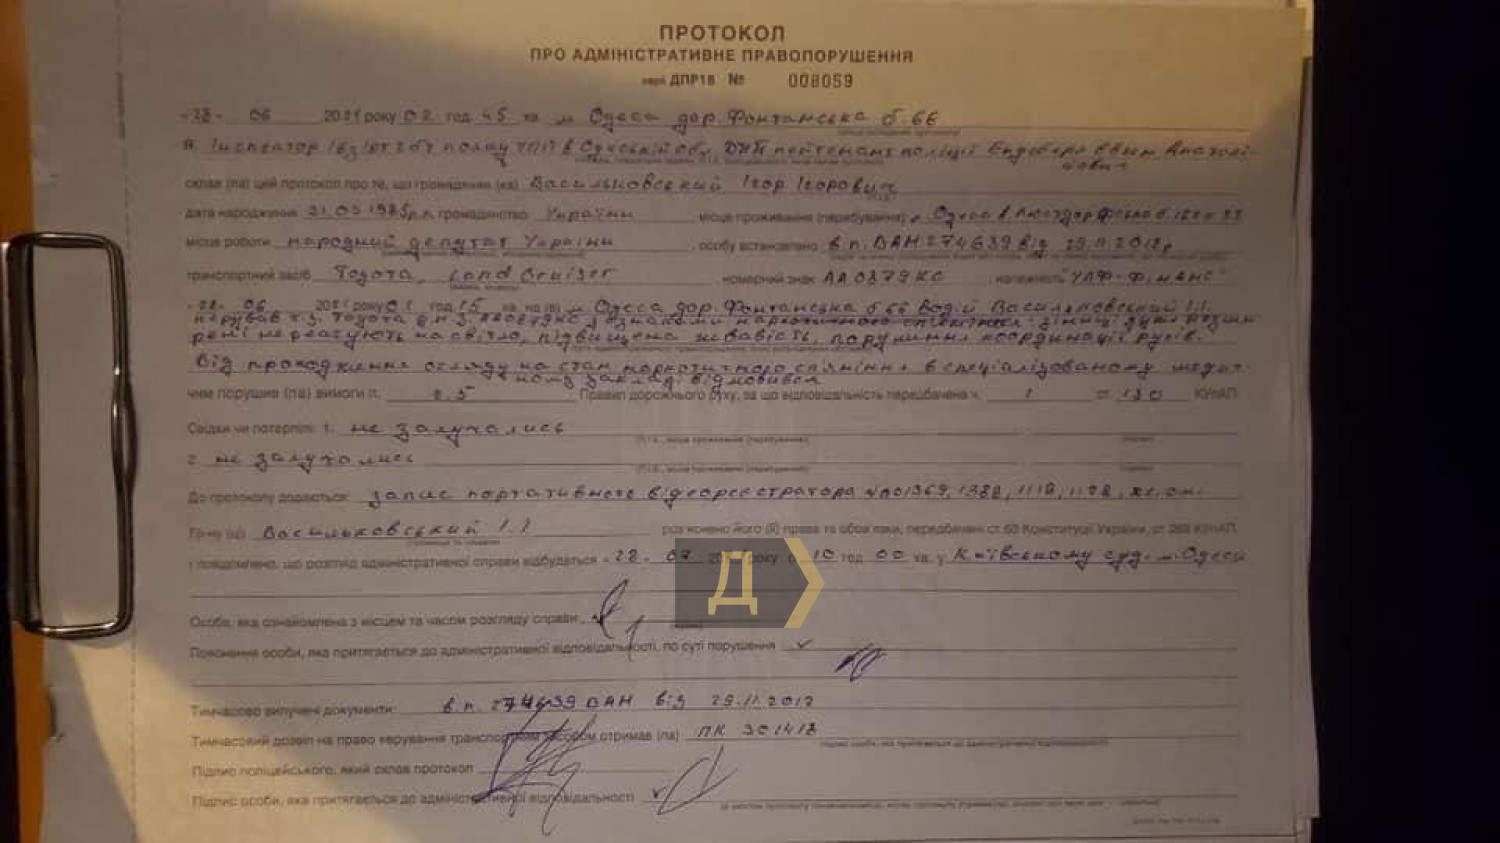 ПРОТОКОЛ
ПРО АДМІНІСТРАТИВНЕ ПРАВОПОРУШЕННЯ
серії ДПР18 № 008059
06 2021 року 02 год 45 хв м Одеса дор. Фонтанська б. 66
Я, Інспектор полку в Одеській обл ДПП лейтенант поліції
склав (ла) цей протокол про те, що громадянин (ка) Васильковський Ігор Ігорович
дата народження 1985р.н. громадянство України місце проживання (перебування) м Одеса
місце роботи народний депутат України особу встановлено в.п. ВАН 274639 від 29.11.2012р
транспортний засіб Тозота Land Cruiser номерний знак АА0379КС належність УЛФ-Фінанс
06 2021 року 01 год 15 хв. на (в) м Одеса дор. Фонтанська б 66 Водій Васильковський І.І.
керував т.з. Тозота д.н.з. з ознаками наркотичного сп'яніння: зіниці дуже розши
рені не реагують на світло, підвищена жвавість, порушення координації рухів.
Від проходження огляду на стан наркотичного сп'яніння в спеціалізованому медич-
ному закладі відмовився
чим порушив (ла) вимоги п. 2.5 Правил дорожнього руху, за що відповідальність передбачена ч. 1 ст. 130 КУпАП
Свідки чи потерпілі: 1. не залучались
2. не залучались
До протоколу додаються: запис портативного відеореєстратора
Гр-ну (ці) Васильковський І.І роз'яснено його (її) права та обов'язки, передбачені ст. 63 Конституції України, ст. 268 КУпАП,
і повідомлено, що розгляд адміністративної справи відбудеться 28 07 року о 10 год 00 хв. у Київському суді м. Одеси
Д
Особа, яка ознайомлена з місцем та часом розгляду справи
Пояснення особи, яка притягається до адміністративної відповідальності, по суті порушення
Тимчасово вилучені документи: в.п. 274639 ВАН від 29.11.2012
Тимчасовий дозвіл на право керування транспортним засобом отримав (ла) ПК 301418
Підпис поліцейського, який склав протокол
Підпис особи, яка притягається до адміністративної відповідальності